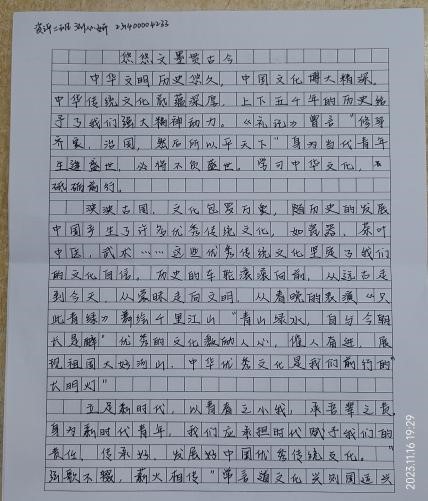 悠悠文墨贯古今
中华文明历史悠久，中国文化博大精深。
中华传统文化底蕴深厚，上下五千年的历史给
予了我们强大精神动力。《礼记》曾言"修身
齐家，治国，然后所以平天下"身为当代青年
生逢盛世，必将不负盛世。学习中华文化，
砥砺前行。
泱泱古国，文化包罗万象，随历史的发展
中国产生了许多优秀传统文化，如瓷器，茶叶
中医，武术……这些优秀传统文化坚定了我们
的文化自信，历史的车轮滚滚向前，从远古走
到今天，从蒙昧走向文明，从春晚的表演《只
此青绿》舞绘千里江山"青山绿水，自与今朝
长是醉"优秀的文化激励人心，催人奋进，展
现祖国大好河山，中华优秀文化是我们前行的"
长明灯"
立足新时代，以青春之小我，承吾辈之责
身为新时代青年，我们应承担时代赋予我们的
责任，传承好，发展好中国优秀传统文化。"
弦歌不辍，薪火相传"常言道文化兴则国运兴
2023.11.16 19:29